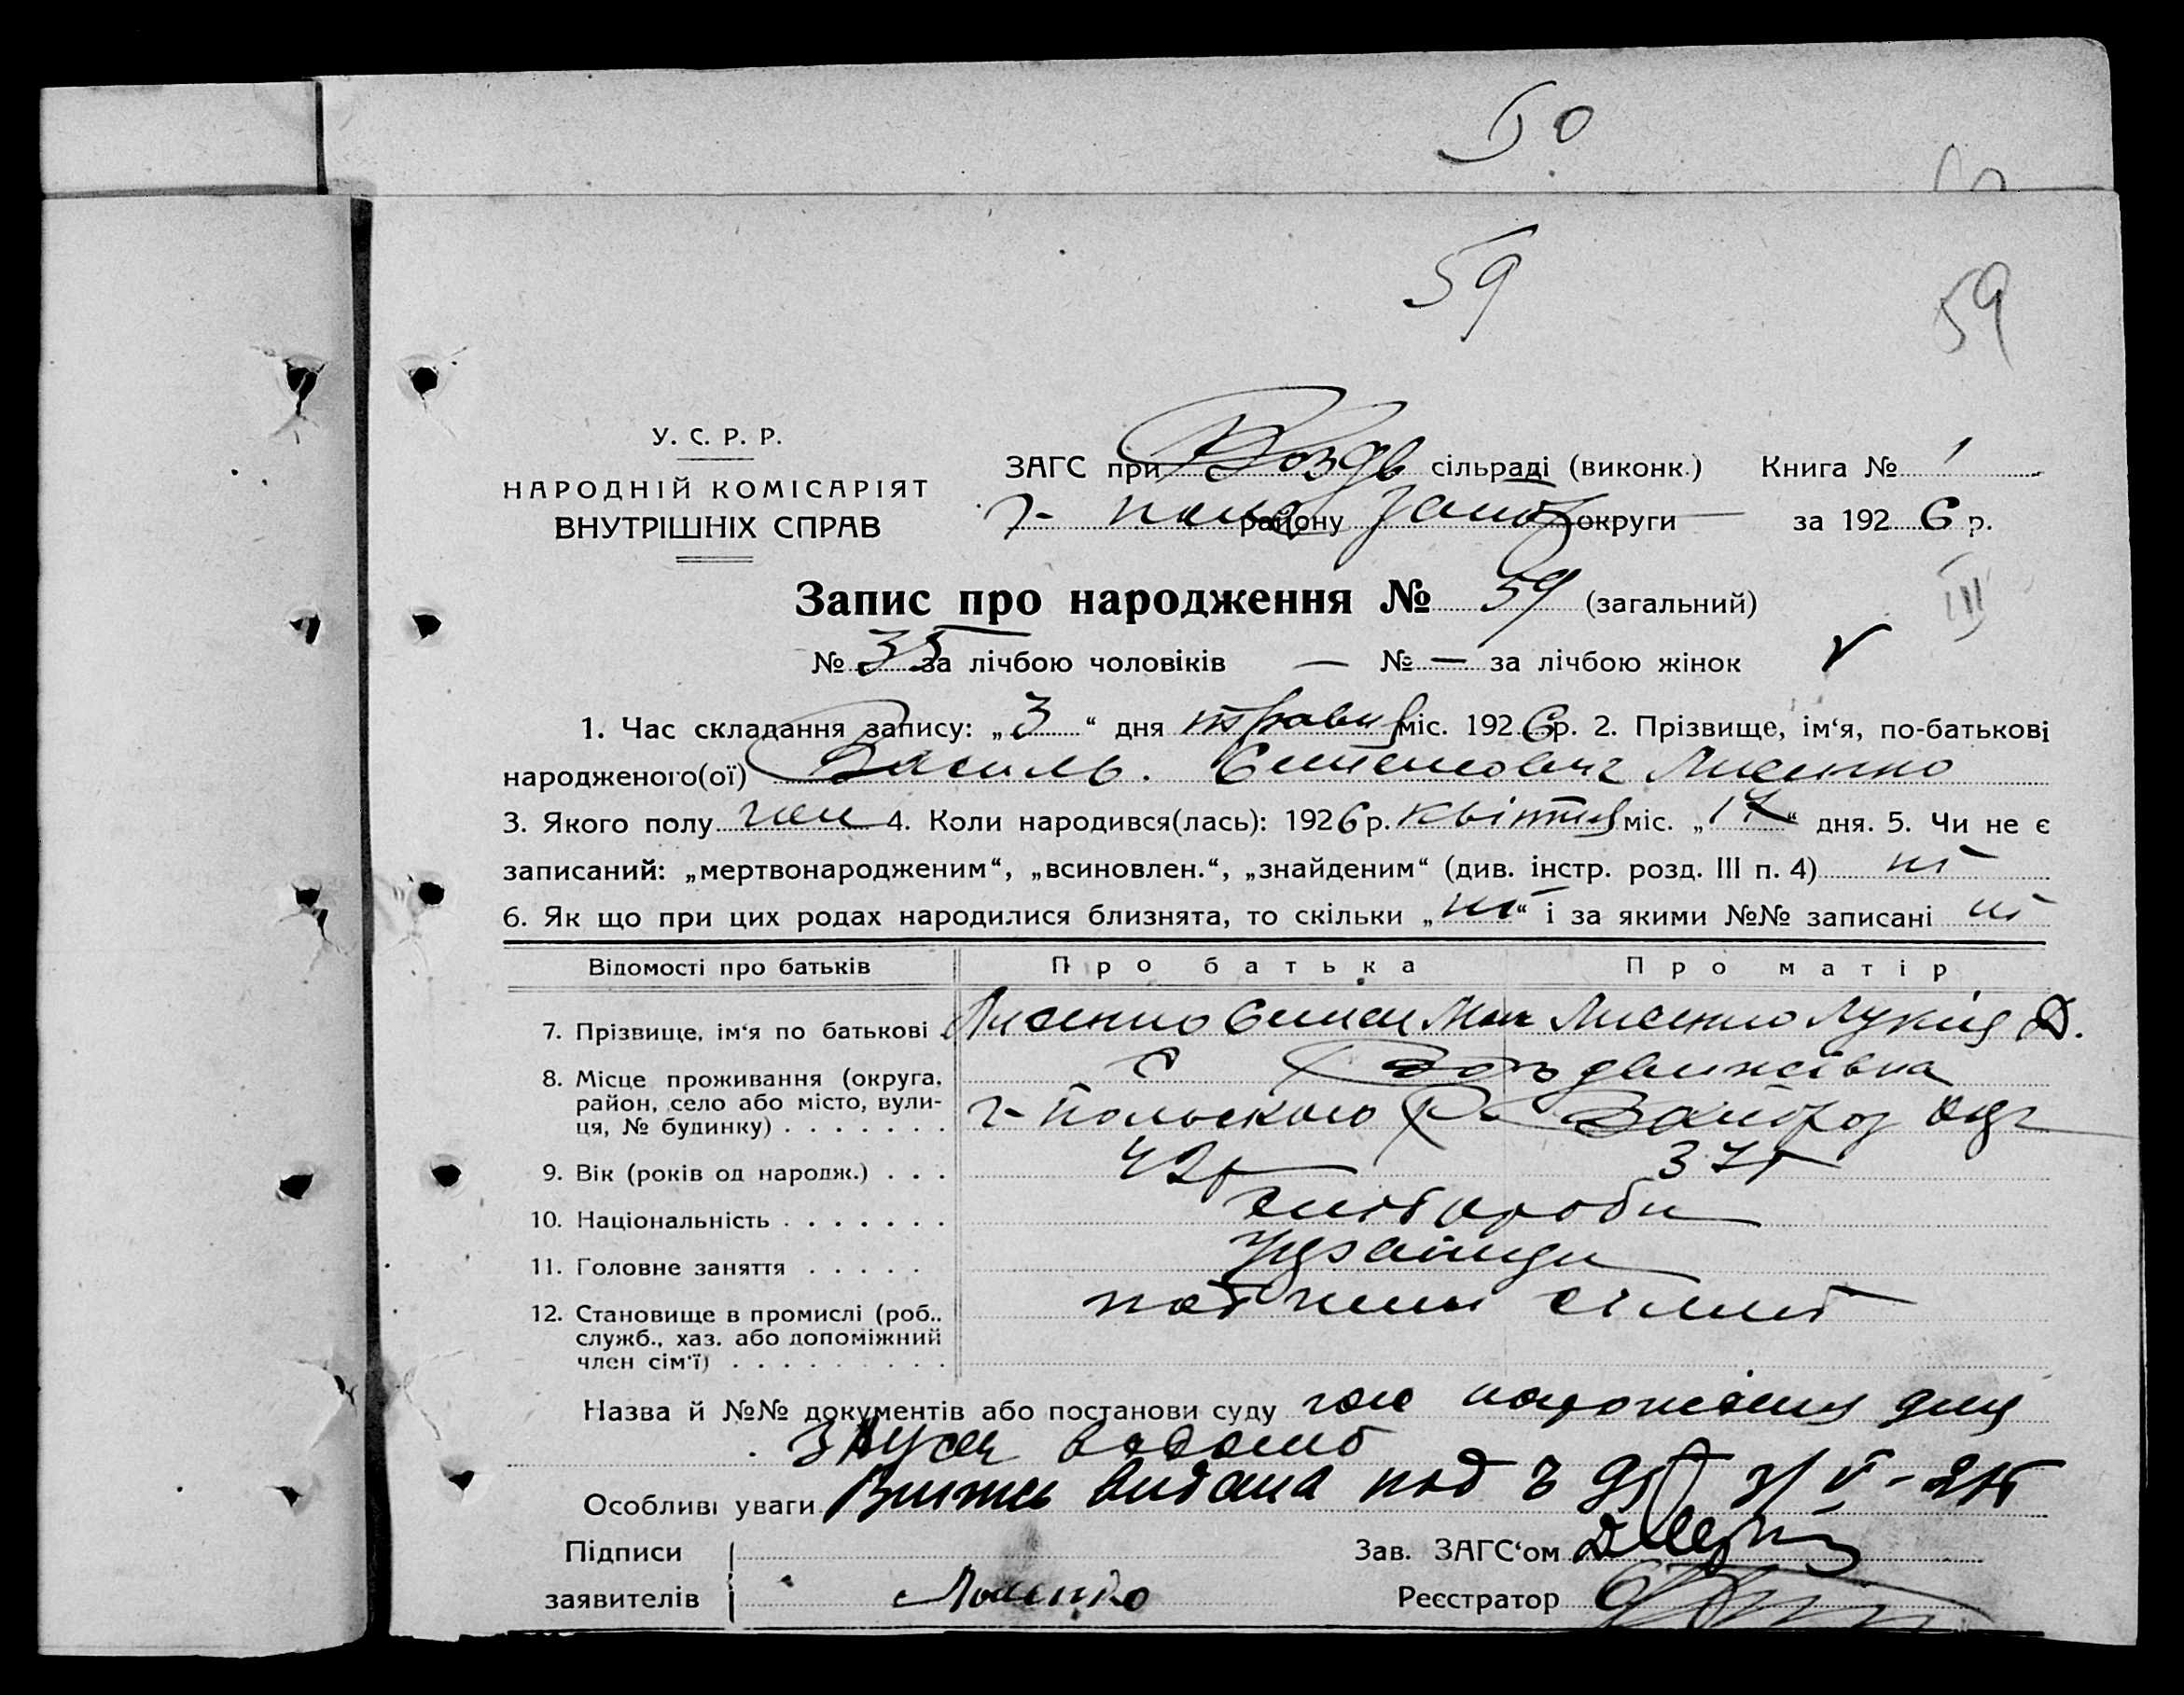 50
59
59
У. С. Р. Р.
НАРОДНІЙ КОМІСАРІЯТ
ВНУТРІШНІХ СПРАВ
ЗАГС при Воздв сільраді (виконк.) Книга № 1
Г- поль району Запор округи за 1926 р.
Запис про народження № 59 (загальний)
III
№ 35 за лічбою чоловіків — № — за лічбою жінок
1. Час складання запису: „3“ дня травня міс. 1926 р. 2. Прізвище, ім‘я, по-батькові
народженого(ої) Василь. Лисенко
3. Якого полу чол 4. Коли народився(лась): 1926 р. квітня міс. „17“ дня. 5. Чи не є
записаний: „мертвонародженим“, „всиновлен.“, „знайденим“ (див. інстр. розд. III п. 4) ні
6. Як що при цих родах народилися близнята, то скільки „ні“ і за якими №№ записані ні
Відомості про батьків Про батька Про матір
7. Прізвище, ім‘я по батькові Лисенко Лисенко Лукія
8. Місце проживання (округа, С Воздвижівка
район, село або місто, вули- Г-Польського Р Запор окр
ця, № будинку)
9. Вік (років од народж.) 42р 37р
10. Національність хлібороби
11. Головне заняття Українци
12. Становище в промислі (роб.,
служб., хаз. або допоміжний
член сім‘ї)
Назва й №№ документів або постанови суду
Особливі уваги видана под
Підписи Зав. ЗАГС‘ом
заявителів Лисенко Реєстратор